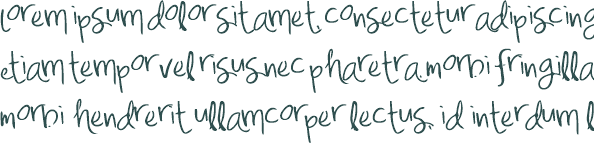 Lorem ipsum dolor sit amet, consectetur adipiscing
etiam tempor vel risus nec pharetra. morbi fringilla
morbi hendrerit ullamcorper lectus, id interdum l